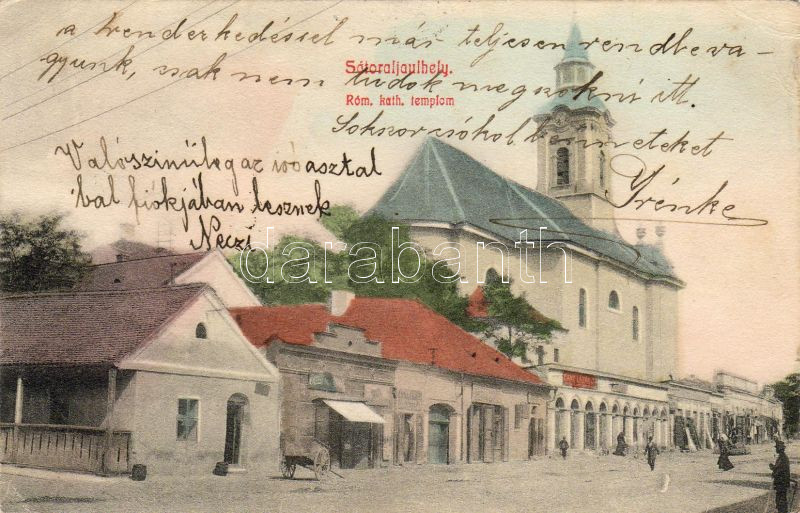 a berendezkedéssel már teljesen rendbeva-
gyunk, csak nem tudok megszokni itt.
Sátoraljaujhely.
Róm. kath. templom
Sokszor csókol benneteket
Irénke
Valószinüleg az iróasztal
bal fiókjában lesznek
Neczi
darabanth